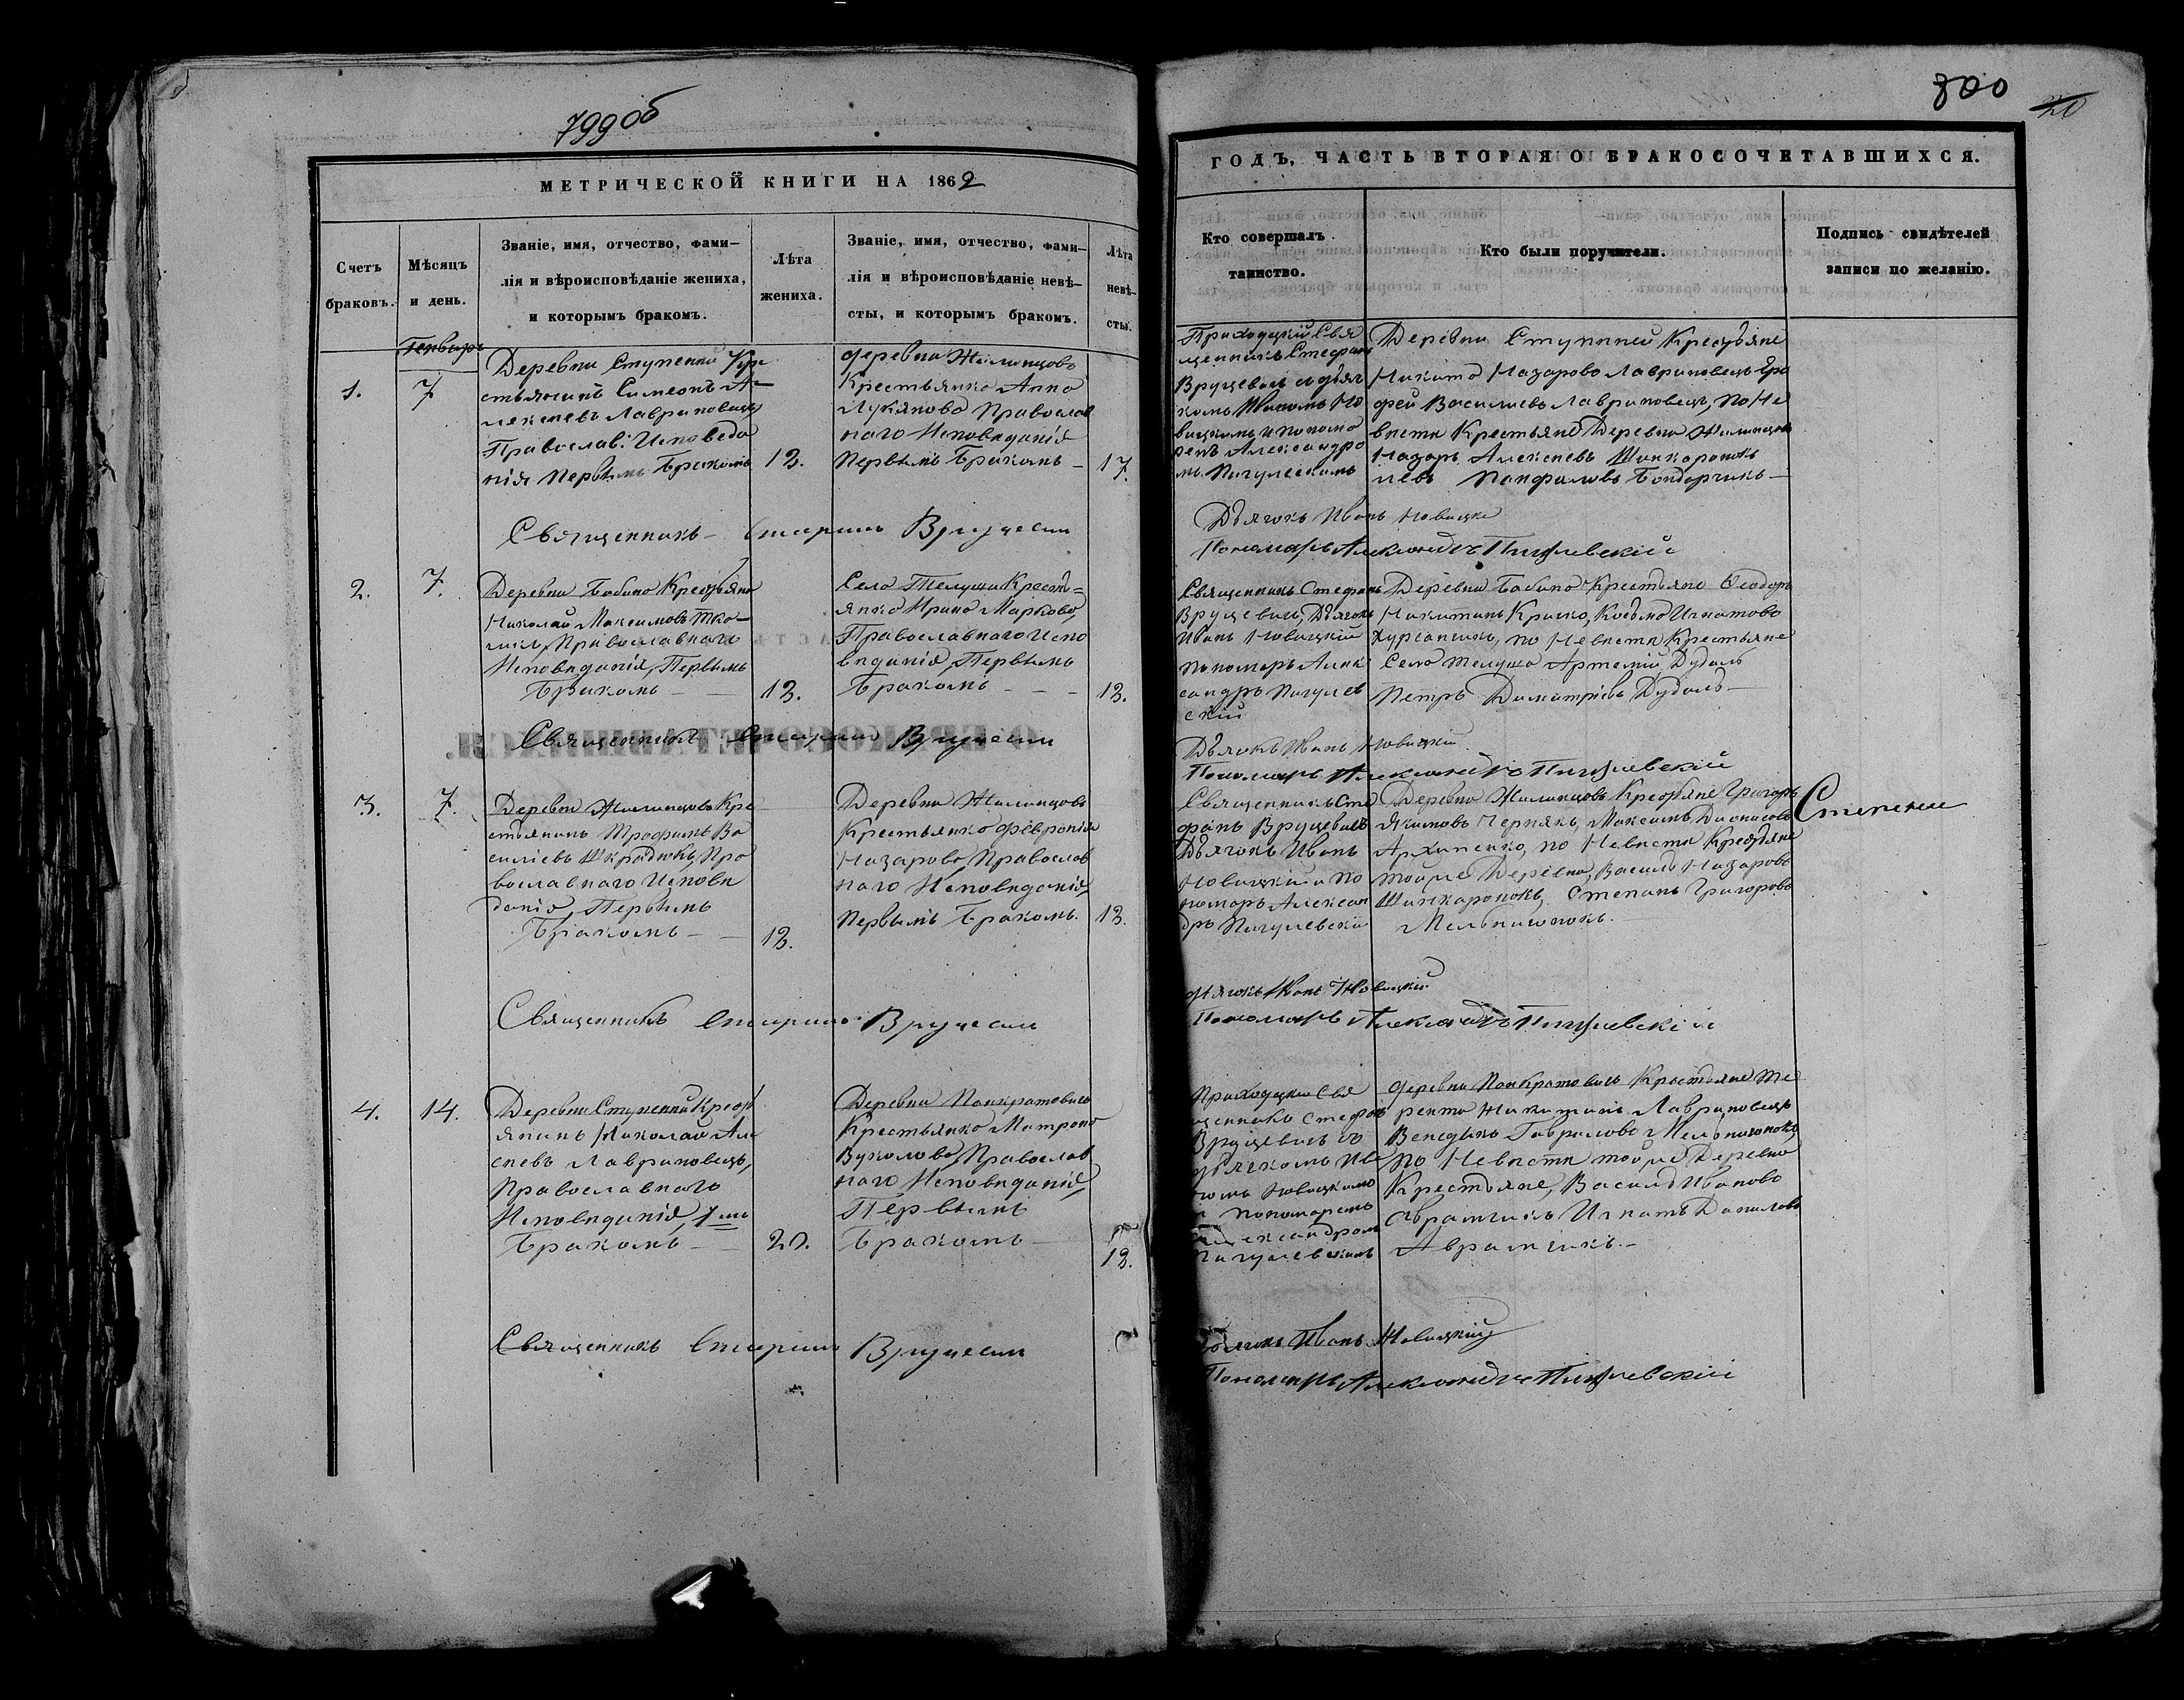 799об
МЕТРИЧЕСКОЙ КНИГИ НА 1862
Счетъ
браковъ.
Мѣсяцъ
и день.
Званіе, имя, отчество, фами-
лія и вѣроисповѣданіе жениха,
и которымъ бракомъ.
Лѣта
жениха.
Званіе, имя, отчество, фами-
лія и вѣроисповѣданіе невѣ-
сты, и которымъ бракомъ.
Лѣта
невѣ-
сты.
Генварь
1.
7
Деревни Ступени Кре
стьянинъ Симеонъ А-
лексеевъ Лавриновецъ
Православ: Исповеда
нія Первымъ Бракомъ
18.
Деревни Жилинцовъ
Крестьянка Анна
Лукянова Православ
наго Исповеданія
Первымъ Бракомъ
17.
Священникъ Стефанъ Вруцевичъ
2.
7.
Деревни Бабина Крестьяни
Николай Максимовъ Тка-
чикъ, Православнаго
Исповеданія, Первымъ
Бракомъ
18.
Села Телуши Кресть=
янка Ирина Маркова,
Православнаго Испо
веданія, Первымъ
Бракомъ
18.
Священникъ Стефанъ Вруцевичъ
3.
7.
Деревни Жилинцовъ Кре
стьянинъ Трофимъ Ва
силіевъ Шкрадюкъ, Пра
вославнаго Исповѣ
данія, Первымъ
Бракомъ
18.
Деревни Жилинцовъ
Крестьянка Февронія
Назарова Православ
наго Исповеданія,
Первымъ Бракомъ.
18.
Священникъ Стефанъ Вруцевичъ
4.
14.
Деревни Ступени Крест
янинъ Николай Але
сеевъ Лавриновецъ,
Православнаго
Исповеданія, 1мъ
Бракомъ
20.
Деревни Панкратовичъ
Крестьянка Матрона
Вуколова, Православ
наго Исповеданія,
Первымъ
Бракомъ
18.
Священникъ Стефанъ Вруцевичъ
800
20
ГОДЪ, ЧАСТЬ ВТОРАЯ О БРАКОСОЧЕТАВШИХСЯ.
Кто совершалъ
таинство.
Кто были поручители.
Подпись свидѣтелей
записи по желанію.
Приходскій Свя
щенникъ Стефанъ
Вруцевичъ съ дья
комъ Иваномъ Но
вицкимъ и понома
ремъ Александро
мъ Пигулевскимъ
Деревни Ступеней Крестьяне
Никита Назаровъ Лавриновецъ Еро
фей Василиевъ Лавриновецъ, по Не
вести Крестьяне Деревни Жилинцовъ
Назаръ Алексеевъ Шинкаронокъ
Панфиловъ Бондарчикъ
Дьячокъ Иванъ Новицкій
Пономарь Александръ Пигулевскій
Священникъ Стефанъ
Вруцевичъ, Дьячокъ
Иванъ Новицкій
пономарь Алек
сандръ Пигулев
скій
Деревни Бабина Крестьяне Ѳеодоръ
Никитинъ Кришко, Козьма Игнатовъ
по Невести Крестьяне
Села Телуша Артемій Дудаль
Петръ Димитріевъ Дудаль
Дьячокъ Иванъ Новицкій
Пономарь Александръ Пигулевскій
Священникъ Сте
фанъ Вруцевичъ
Дьячокъ Иванъ
Новицкій и по
номарь Алексан
дръ Пигулевскій
Деревни Жилинцовъ Крестьяне Григоръ
Якимовъ Чернякъ, Максимъ Дионисовъ
Архипенко, по Невести Крестьяне
тойже Деревни, Василь Назаровъ
Шинкаронокъ, Степанъ Григоровъ
Мельниконокъ.
Дьячокъ Иванъ Новицкій
Пономарь Александръ Пигулевскій
Приходскій Свя
щенникъ Стефанъ
Вруцевичъ съ
дьячкомъ Ива
номъ Новицкимъ
и пономаремъ
Александромъ
Пигулевскимъ
Деревни Панкратовичъ Крестьяне Те
рента Никитинъ Лавриновецъ
Венедыкъ Гавриловъ Мельниконокъ
по Невести тойже Деревни
Крестьяне, Василь Ивановъ
Аврамчикъ Игнатъ Даниловъ
Аврамчикъ.
Дьячокъ Иванъ Новицкій
Пономарь Александръ Пигулевскій